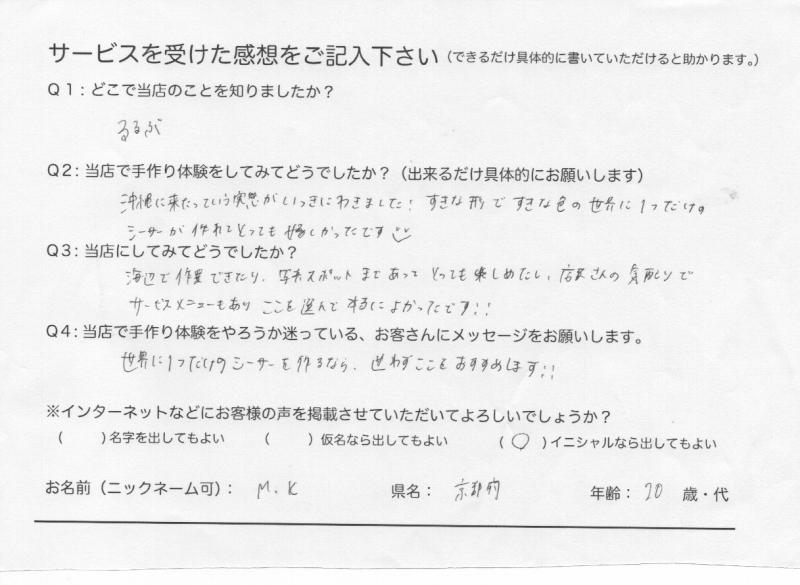 サービスを受けた感想をご記入下さい(できるだけ具体的に書いていただけると助かります。)
Q1:どこで当店のことを知りましたか?
るるぶ
Q2:当店で手作り体験をしてみてどうでしたか?(出来るだけ具体的にお願いします)
沖縄に来たっていう実感がいっきにわきました! すきな形ですきな色の世界に1つだけの
シーサーが作れてとっても嬉しかったです
Q3:当店にしてみてどうでしたか?
海辺で作業できたり、写真スポットまであってとっても楽しめたし、店員さんの気配りで
サービスメニューもあり ここを選んで本当によかったです!!
Q4:当店で手作り体験をやろうか迷っている、お客さんにメッセージをお願いします。
世界に1つだけのシーサーを作るなら、迷わずここをおすすめします!!
※インターネットなどにお客様の声を掲載させていただいてよろしいでしょうか?
( )名字を出してもよい ( )仮名なら出してもよい (○)イニシャルなら出してもよい
お名前(ニックネーム可): M.K 県名: 京都府 年齢: 20 歳・代